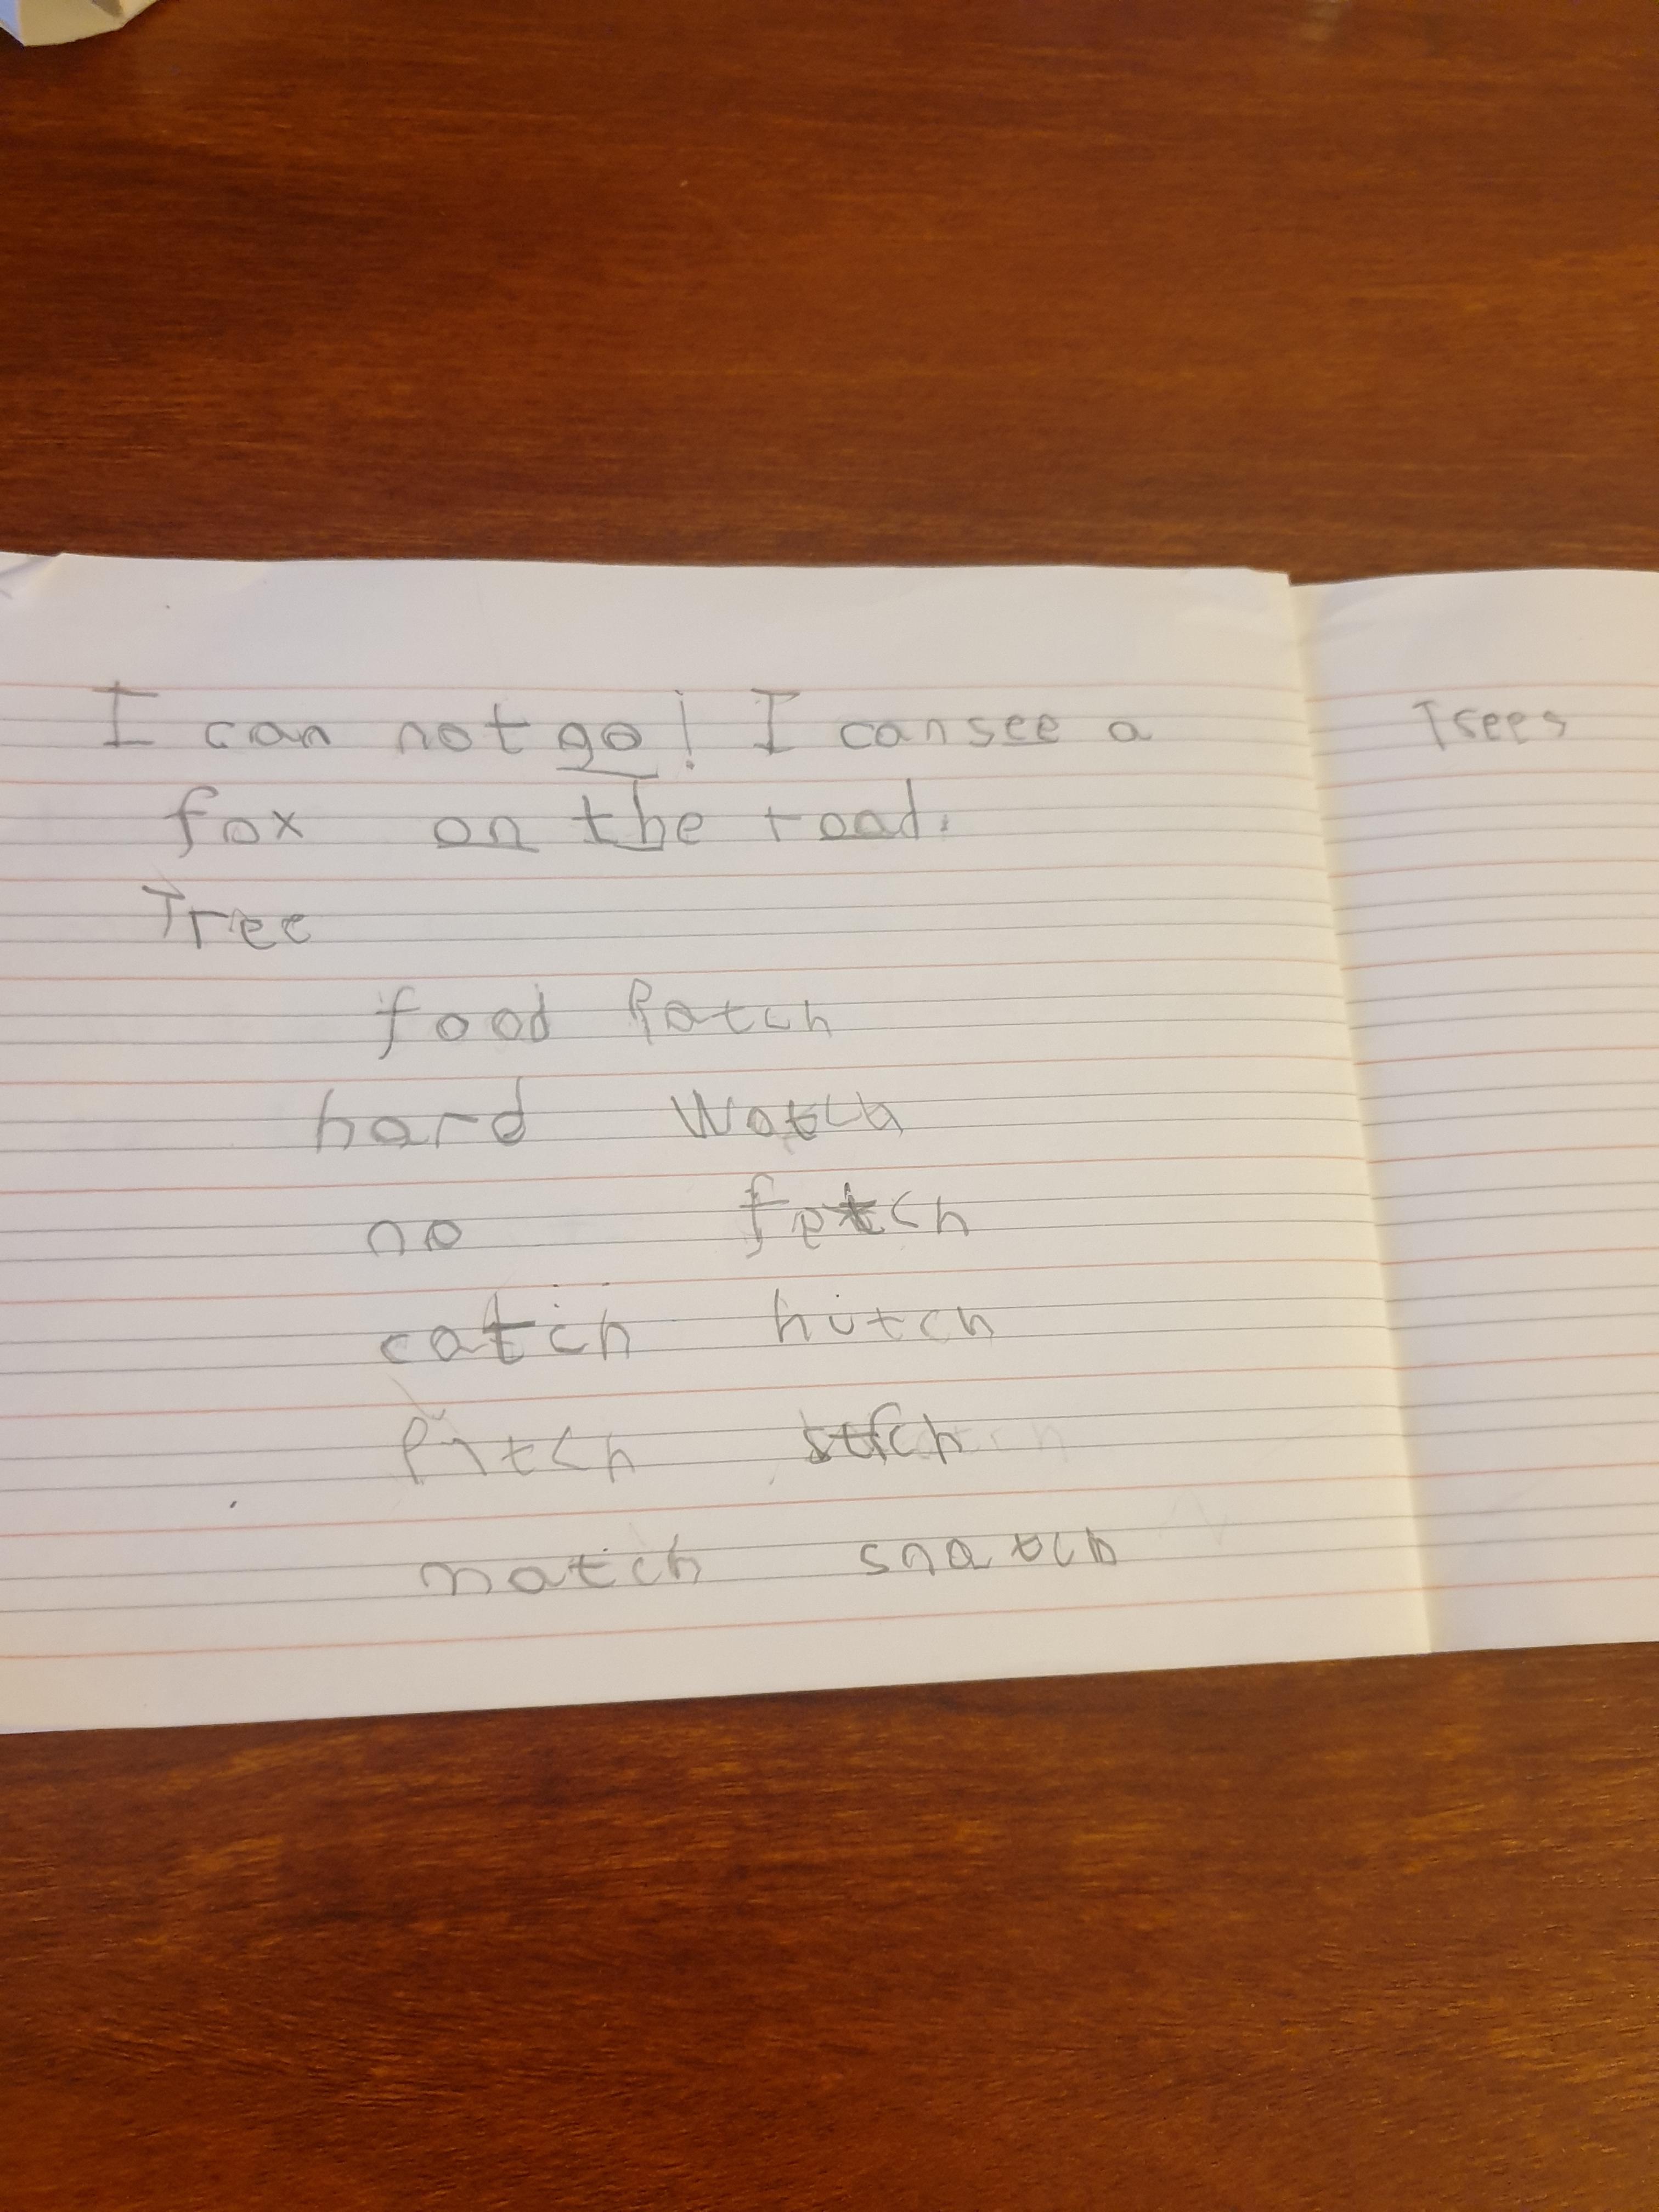 I can not go! I can see a
fox on the road.
Tree
food Patch
hard Watch
no fetch
catch hutch
Pitch
match snatch
Tsees